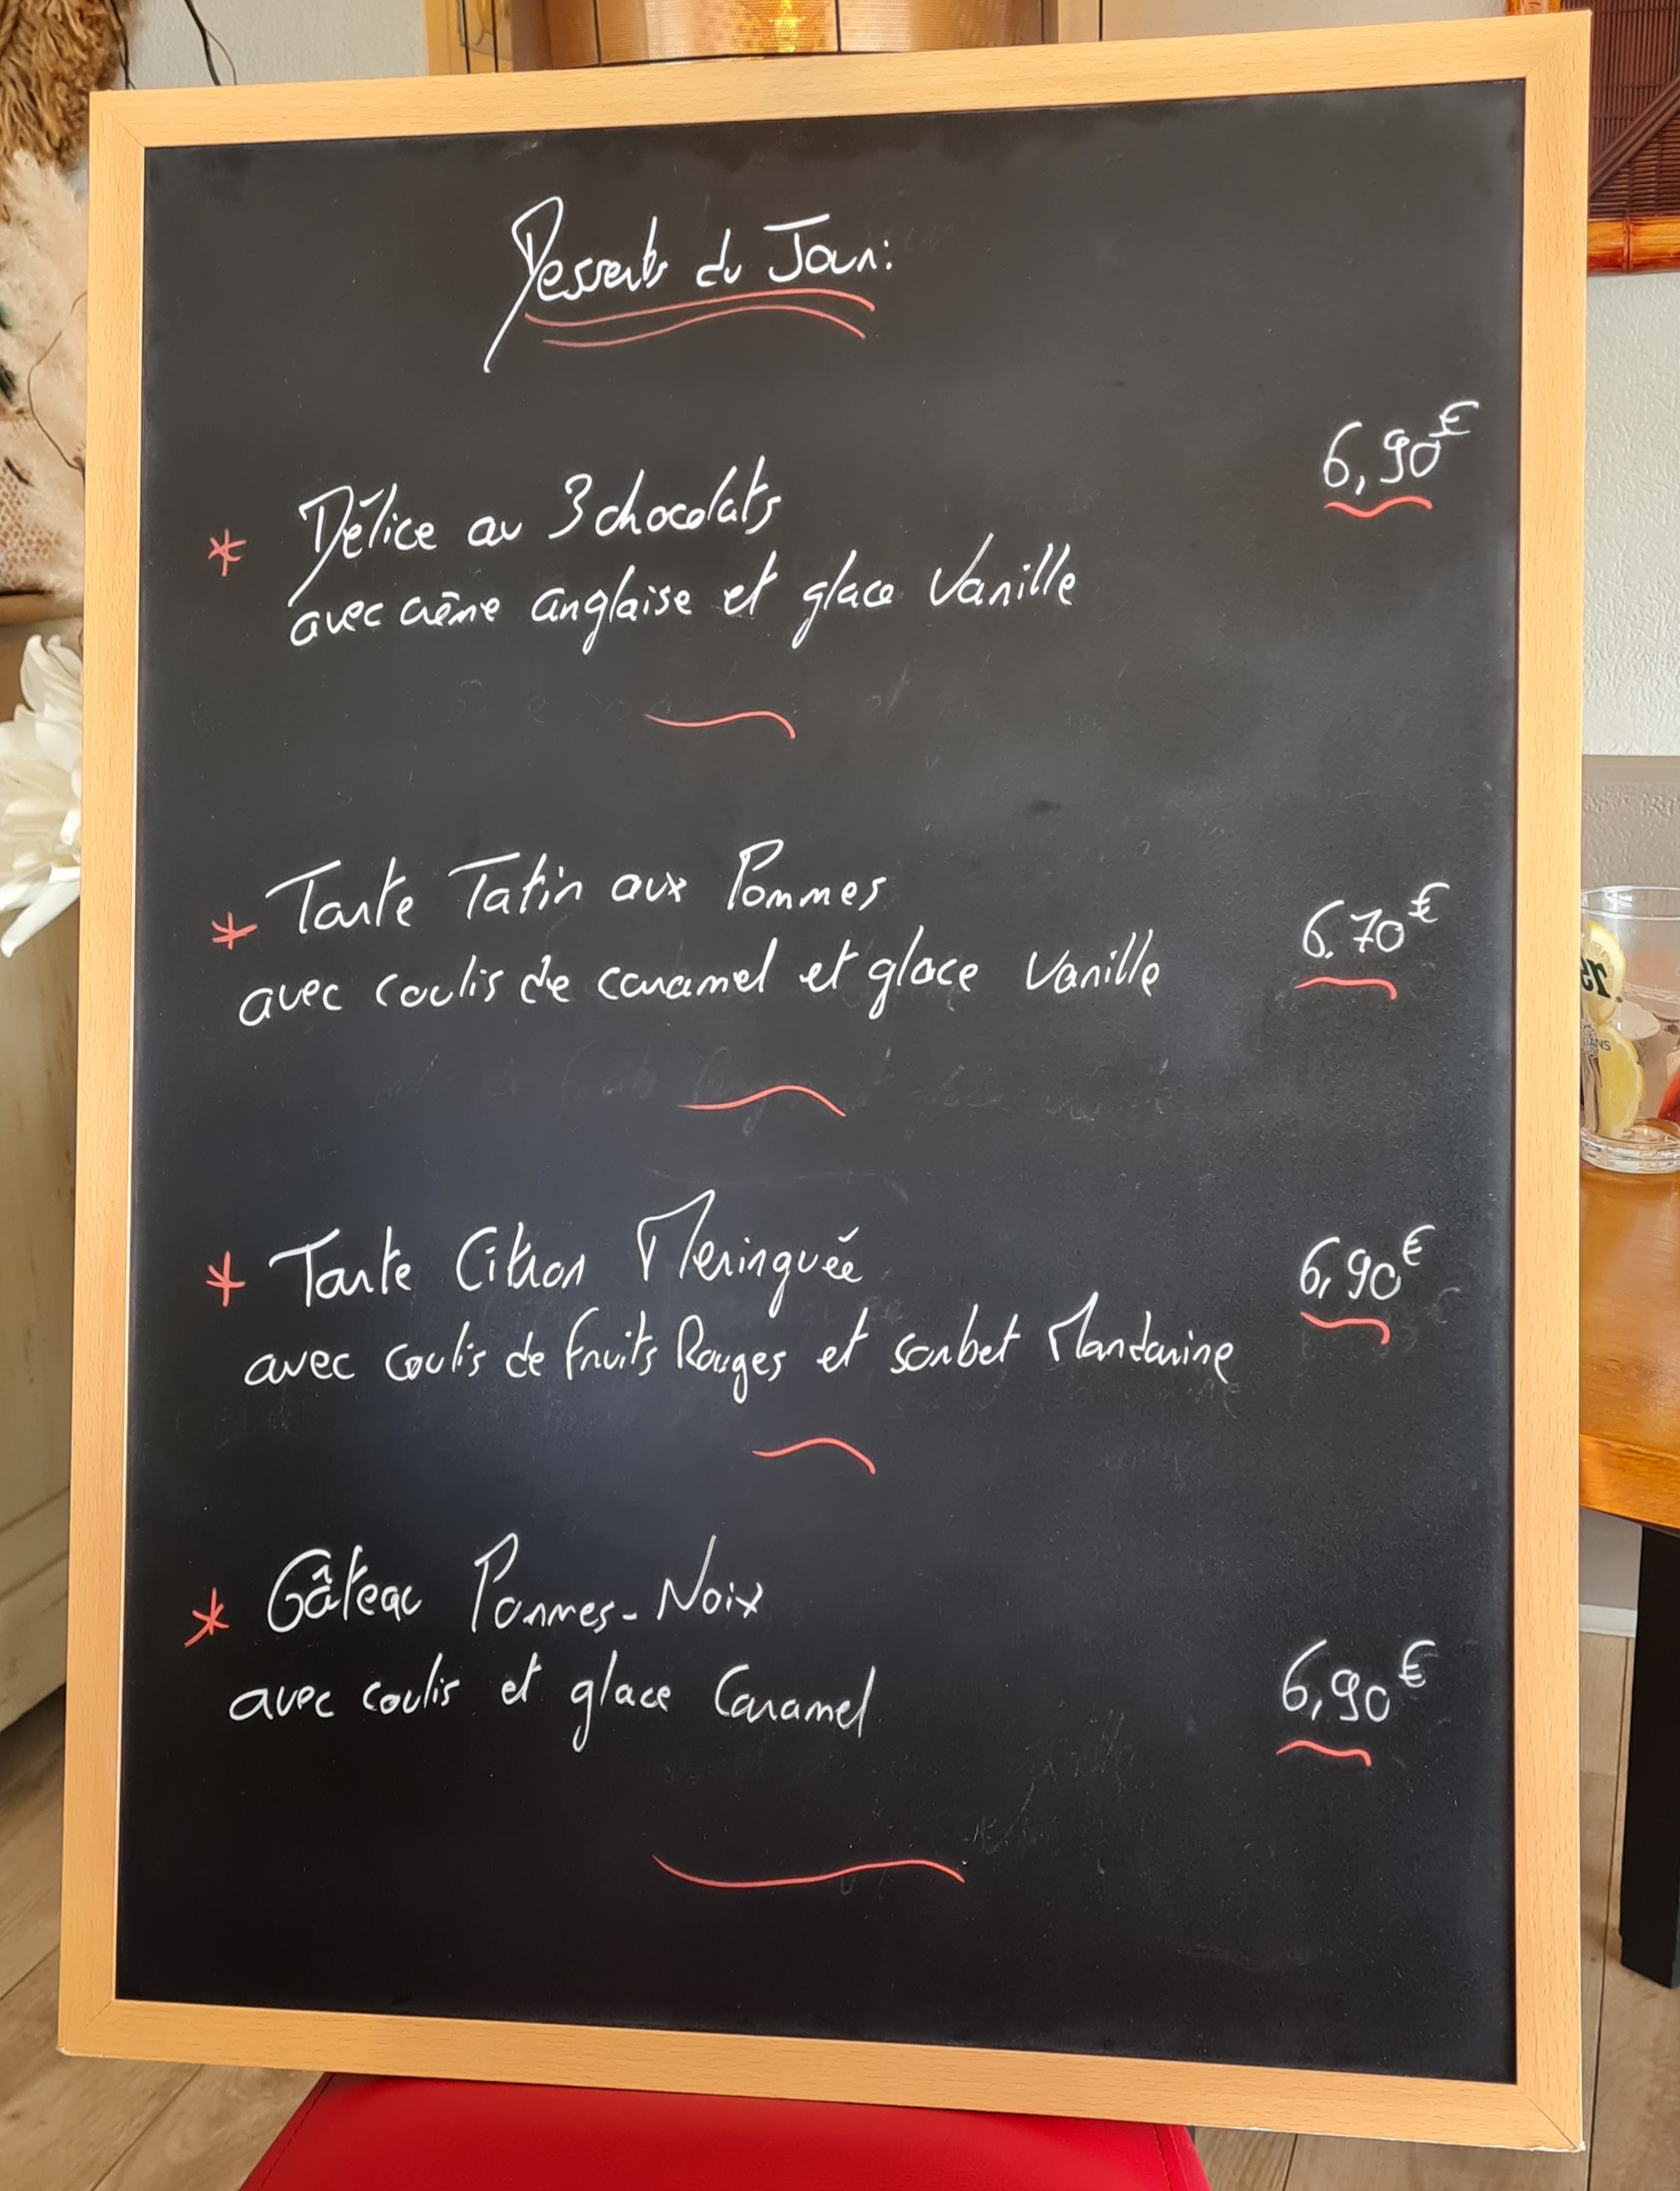 Desserts du Jour:
6,90€
* Délice au 3 chocolats
avec crème anglaise et glace Vanille
* Tarte Tatin aux Pommes
6.70€
avec coulis de caramel et glace Vanille
* Tarte Citron Meringuée
6,90€
avec coulis de fruits Rouges et sorbet Mandarine
* Gâteau Pommes-Noix
avec coulis et glace Caramel
6,90€